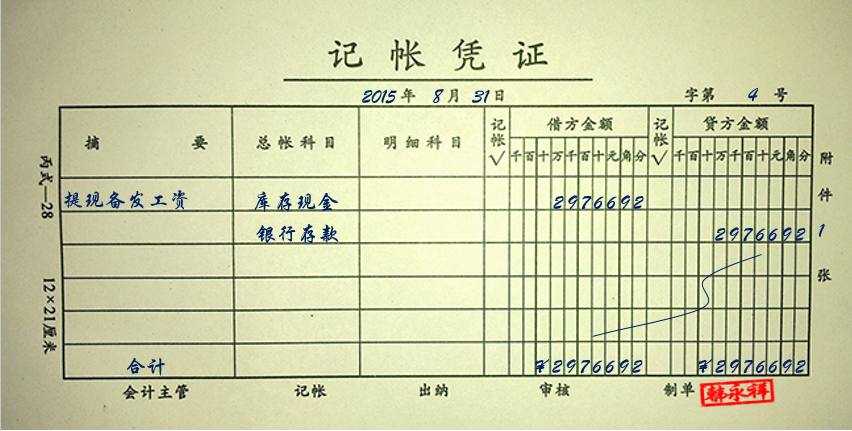 记帐凭证
2015年 8月 31日 字第 4 号
摘要 总帐科目 明细科目 记帐√ 借方金额 记帐√ 贷方金额
千百十万千百十元角分 千百十万千百十元角分
提现备发工资 库存现金 2976692
银行存款 2976692
合计 ¥2976692 ¥2976692
会计主管 记帐 出纳 审核 制单 韩永祥
附件 1 张
丙式—28 12×21厘米